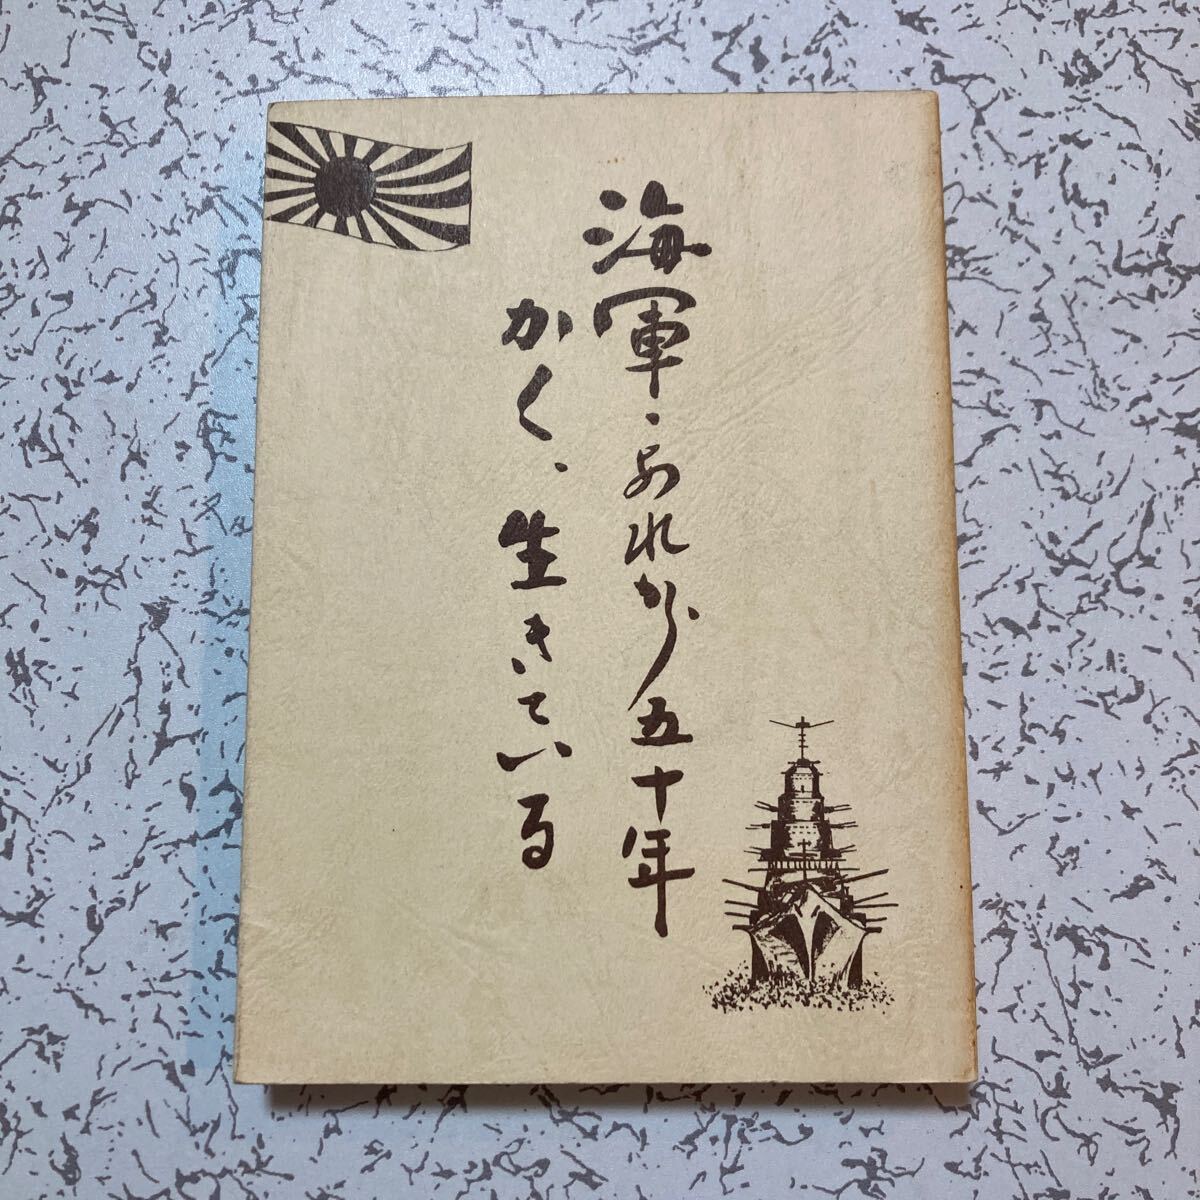 海軍、あれから五十年
かく、生きている